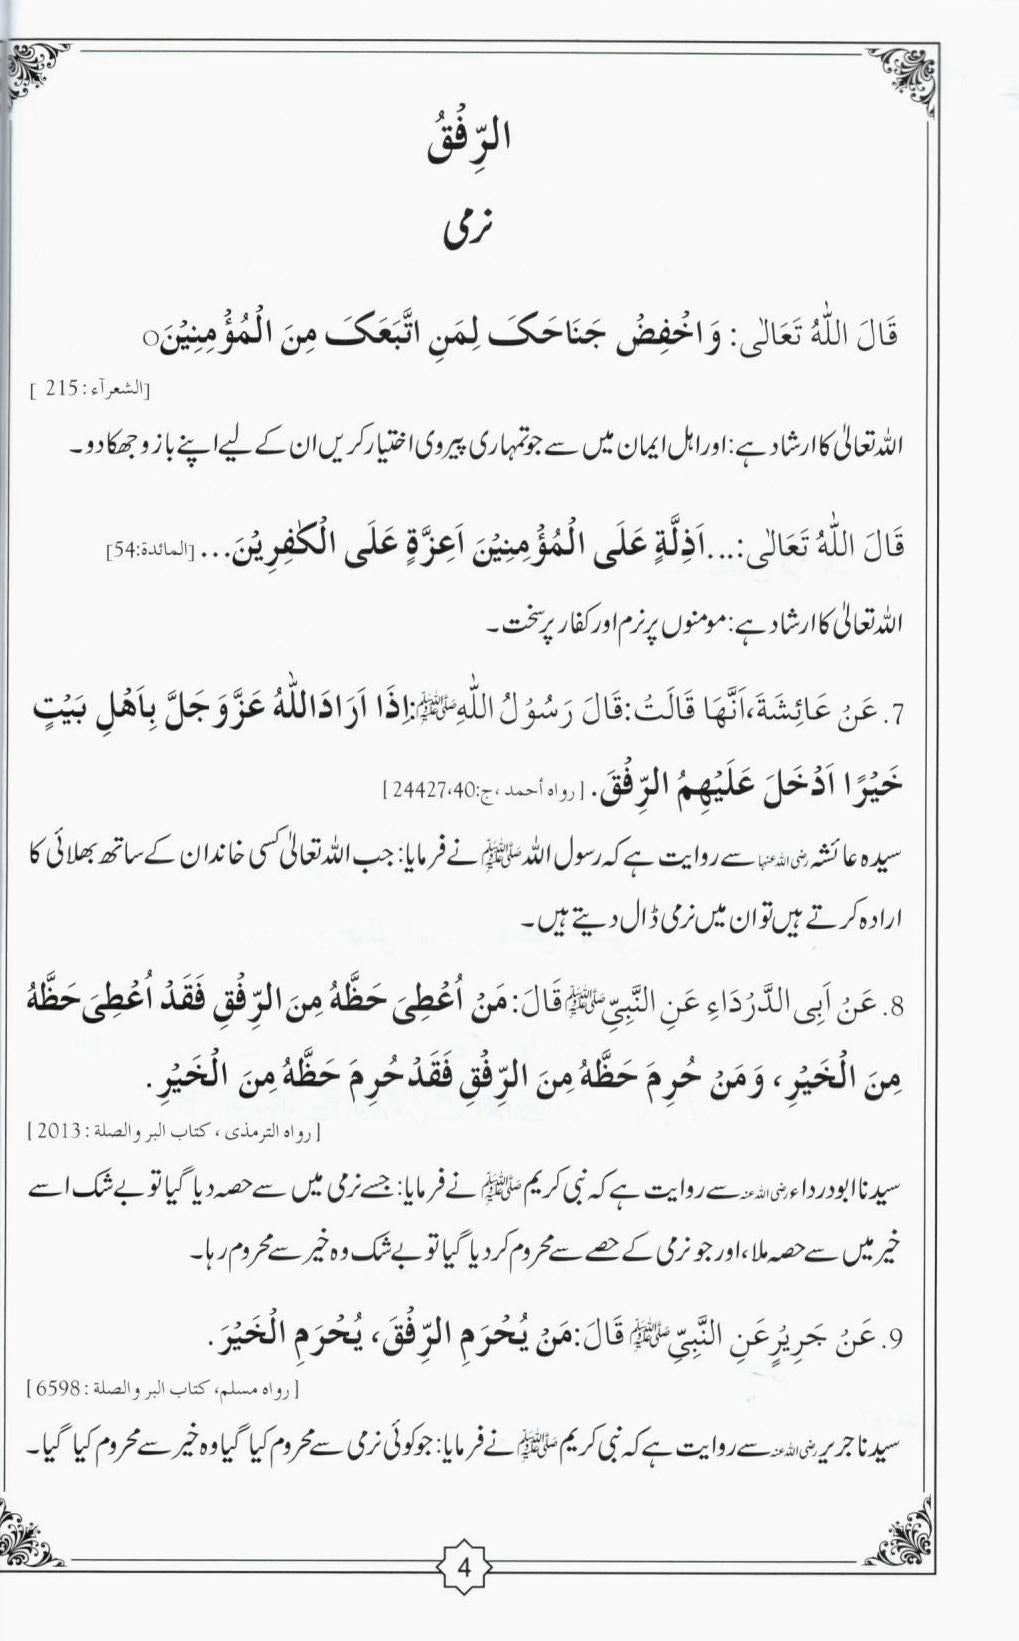 الرِّفْقُ
نرمی
قَالَ اللّٰهُ تَعَالٰی: وَاخْفِضْ جَنَاحَکَ لِمَنِ اتَّبَعَکَ مِنَ الْمُؤْمِنِیْنَ○
[الشعرآء: 215 ]
اللہ تعالیٰ کا ارشاد ہے: اور اہل ایمان میں سے جو تمہاری پیروی اختیار کریں ان کے لیے اپنے بازو جھکا دو۔
قَالَ اللّٰهُ تَعَالٰی:...اَذِلَّةٍ عَلَی الْمُؤْمِنِیْنَ اَعِزَّةٍ عَلَی الْکٰفِرِیْنَ... [المائدة:54]
اللہ تعالیٰ کا ارشاد ہے: مومنوں پر نرم اور کفار پر سخت۔
7. عَنْ عَائِشَةَ، اَنَّهَا قَالَتْ: قَالَ رَسُوْلُ اللّٰهِ ﷺ: اِذَا اَرَادَ اللّٰهُ عَزَّوَجَلَّ بِاَهْلِ بَیْتٍ
خَیْرًا اَدْخَلَ عَلَیْهِمُ الرِّفْقَ. [رواه أحمد، ج:24427،40]
سیدہ عائشہ رضی اللہ عنہا سے روایت ہے کہ رسول اللہ ﷺ نے فرمایا: جب اللہ تعالیٰ کسی خاندان کے ساتھ بھلائی کا
ارادہ کرتے ہیں تو ان میں نرمی ڈال دیتے ہیں۔
8. عَنْ اَبِی الدَّرْدَاءِ عَنِ النَّبِیِّ ﷺ قَالَ: مَنْ اُعْطِیَ حَظَّهُ مِنَ الرِّفْقِ فَقَدْ اُعْطِیَ حَظَّهُ
مِنَ الْخَیْرِ، وَمَنْ حُرِمَ حَظَّهُ مِنَ الرِّفْقِ فَقَدْ حُرِمَ حَظَّهُ مِنَ الْخَیْرِ.
[رواه الترمذی، کتاب البر والصلة: 2013]
سیدنا ابودرداء رضی اللہ عنہ سے روایت ہے کہ نبی کریم ﷺ نے فرمایا: جسے نرمی میں سے حصہ دیا گیا تو بے شک اسے
خیر میں سے حصہ ملا، اور جو نرمی کے حصے سے محروم کر دیا گیا تو بے شک وہ خیر سے محروم رہا۔
9. عَنْ جَرِیْرٍ عَنِ النَّبِیِّ ﷺ قَالَ: مَنْ یُحْرَمِ الرِّفْقَ، یُحْرَمِ الْخَیْرَ.
[رواه مسلم، کتاب البر والصلة: 6598]
سیدنا جریر رضی اللہ عنہ سے روایت ہے کہ نبی کریم ﷺ نے فرمایا: جو کوئی نرمی سے محروم کیا گیا وہ خیر سے محروم کیا گیا۔
4